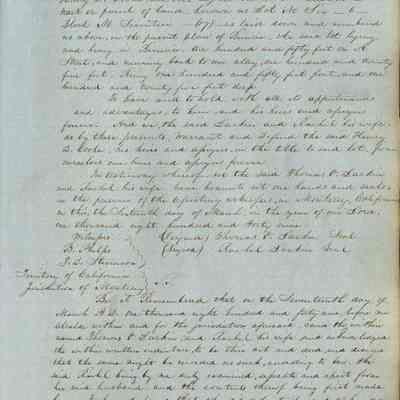 part or parcel of land, known as Lot No Six — 6 —
Block No Seventeen — 17 as laid down and numbered
as above, on the present plan of Benicia, the said lot lying
and being in Benicia, one hundred and fifty feet on
Street, and running back to an alley, one hundred and twenty
five feet. Being one hundred and fifty feet front, and one
hundred and twenty five feet deep.
To have and to hold with all its appurtenances
and advantages, to him and his heirs and assigns
forever. And we the said and Rachel his wife
do by these presents, warrant and defend the said Henry
D. Cooke, his heirs and assigns, in the title to said lot, from
ourselves our heirs and assigns forever.
In testimony whereof we the said Thomas
and Rachel his wife have hereunto set our hands and seals,
in the presence of the witnesses, in Monterey, California
on this, the Sixteenth day of March, in the year of our Lord,
one thousand eight hundred and forty nine.
Witnesses (Signed) Thomas Seal
B. Phelps (Signed) Rachel Seal
Stevenson
Territory of California
Jurisdiction of Monterey S.S.
Be it Remembered that on the Seventeenth day of
March A.D. one thousand eight hundred and forty nine before me
Alcalde within and for the jurisdiction aforesaid, came the within
named Thomas and Rachel his wife and acknowledged
the within written indenture, to be their act and deed and desired
that the same might be recorded as such, according to law. The
said Rachel being by me duly examined, separate and apart from
her said husband and the contents thereof being first made